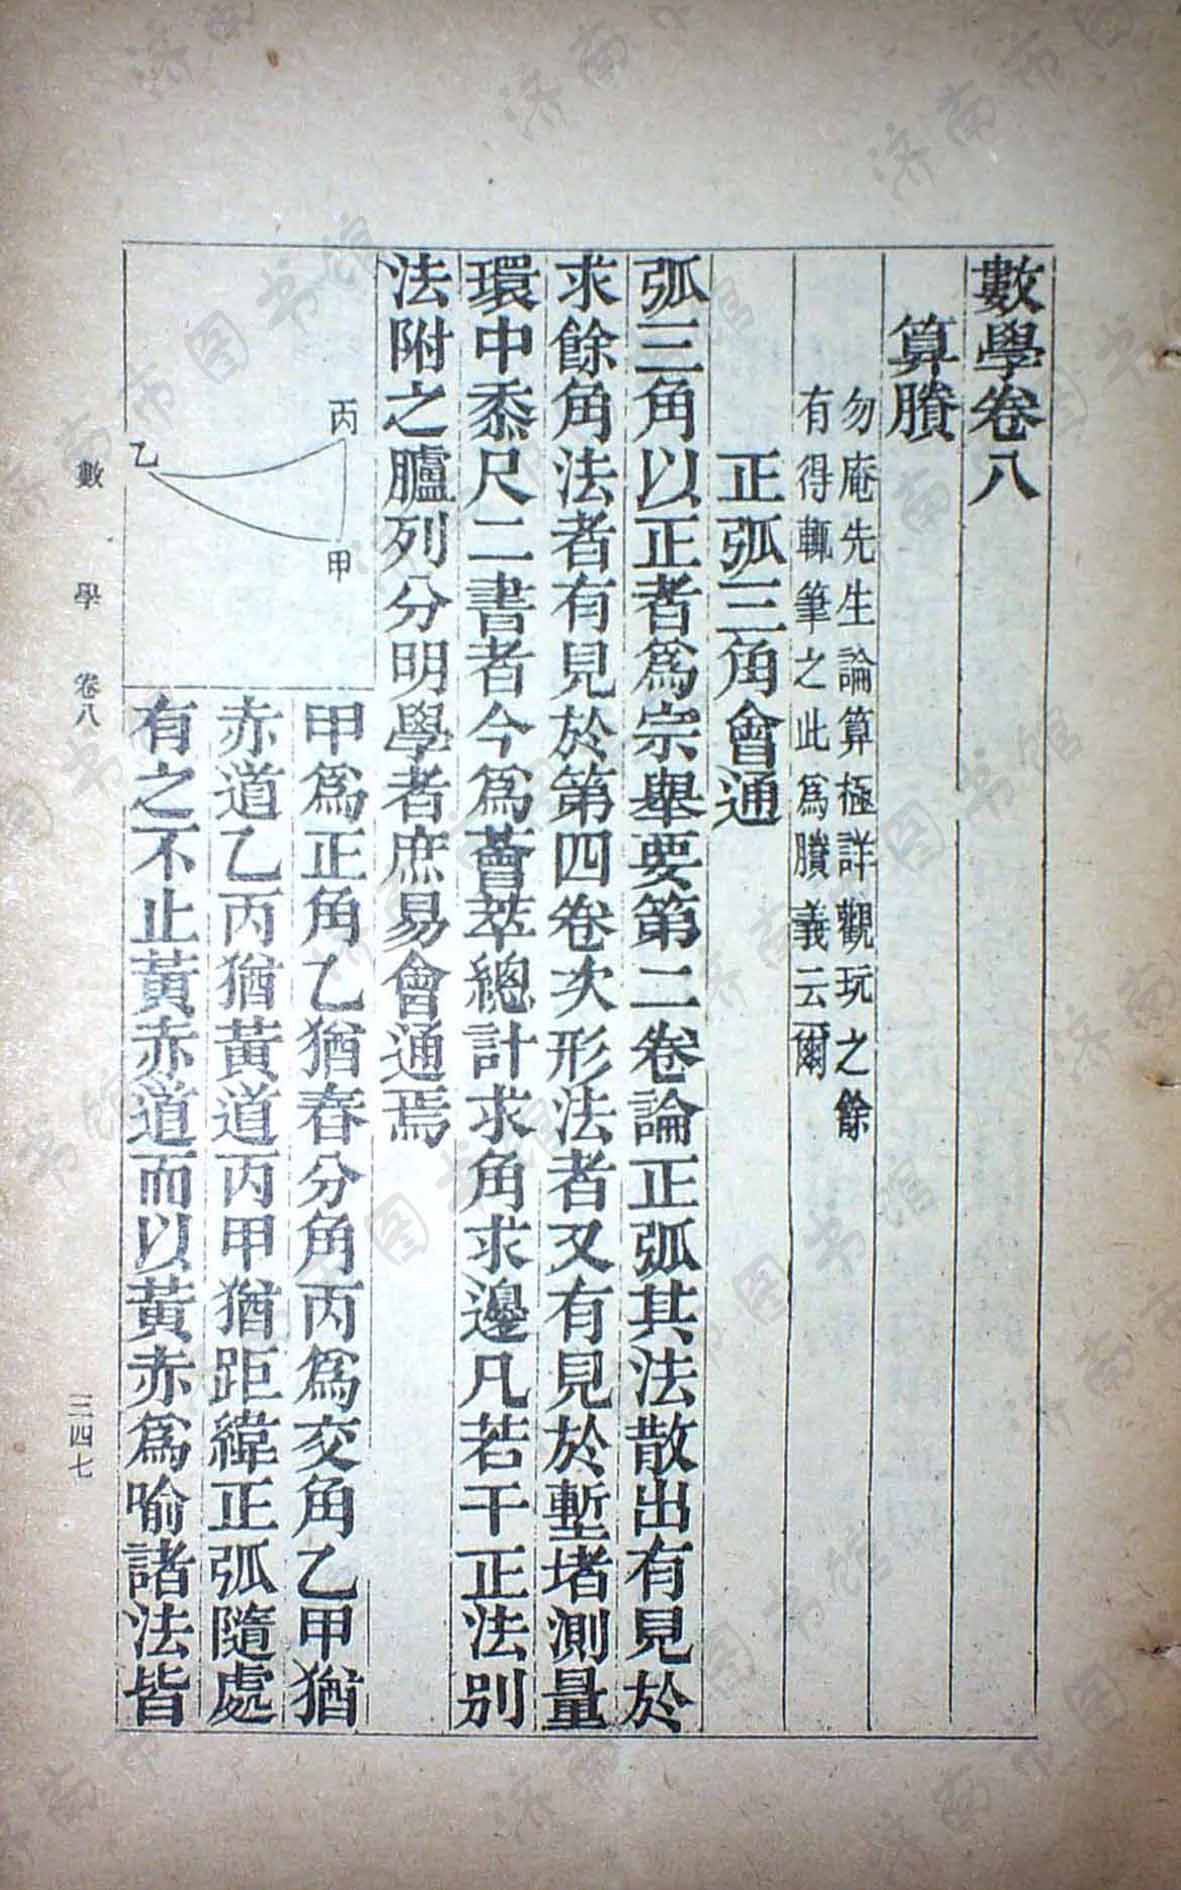 數學卷八
算賸
勿庵先生論算極詳觀玩之餘
有得輒筆之此爲賸義云爾
正弧三角會通
弧三角以正者爲宗舉要第二卷論正弧其法散出有見於
求餘角法者有見於第四卷次形法者又有見於塹堵測量
環中黍尺二書者今爲薈萃總計求角求邊凡若干正法別
法附之臚列分明學者庶易會通焉
丙
乙
甲
甲爲正角乙猶春分角丙爲交角乙甲猶
赤道乙丙猶黃道丙甲猶距緯正弧隨處
有之不止黃赤道而以黃赤爲喻諸法皆
數學 卷八
三四七
济南市图书馆